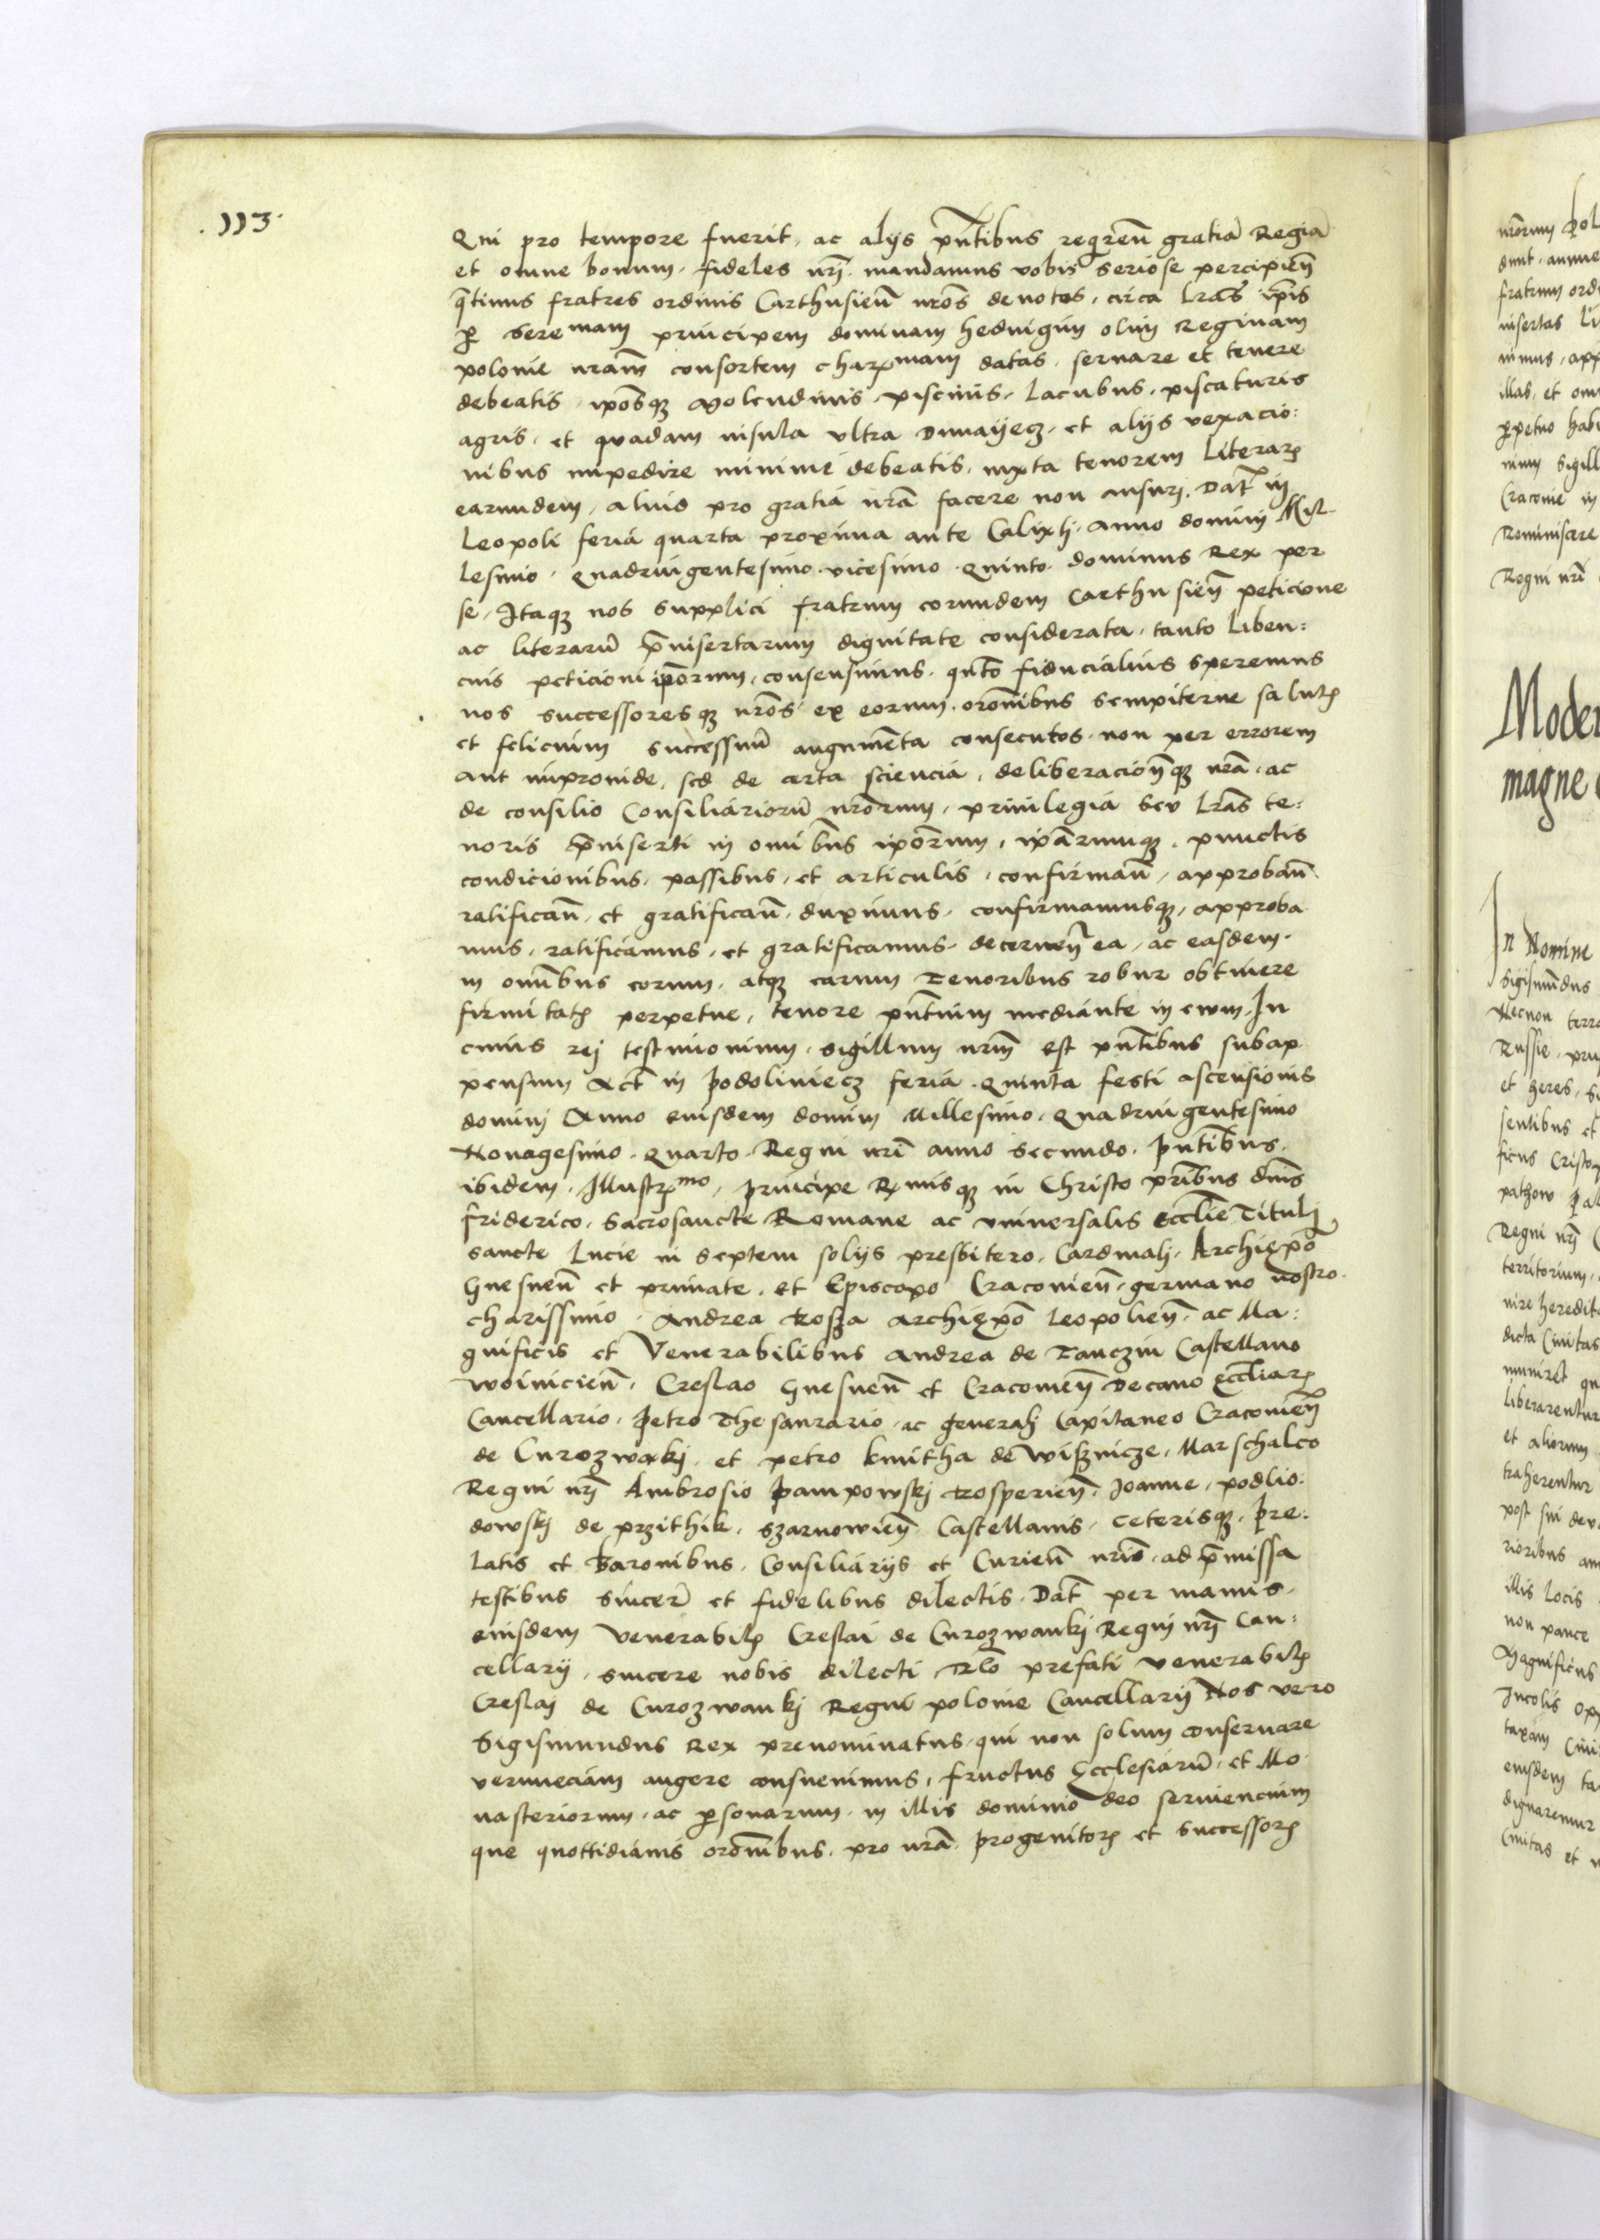 .113.
Qui pro tempore fuerit, ac alijs pñtibus reqren̄ gratiā Regiā
et omne bonum. fideles nrj̄. mandamus vobis seriose percipien̄
q̄tinus fratres ordinis Carthusien̄ nros̄ deuotos, circa lras̄ ipīs
ꝑ seremam principem dominam heduigim olim Reginam
polonie nram̄ consortem charꝫmam datas, seruare et tenere
debeatis, ipos̄qꝫ molendinis, piscinis, Lacubus, piscaturis
agris, et quadam insula vltra Dunayecz, et alijs vexacio:
nibus impedire minime debeatis, iuxta tenorem literarꝫ
earundem, aliud pro gratia nrā facere non ausurj. Dat̄ in
Leopoli feria quarta proxima ante Calixtj. Anno dominj Mil
lesimo. Quadringentesimo. vicesimo. Quinto. dominus Rex per
se. Itaqꝫ nos supplici fratrum eorundem Carthusien̄ peticione
ac literarū p̄insertarum dignitate considerata, tanto Liben:
cius peticioni ipōrum, consensimus, qn̄to fiducialius speremus
nos successoresqꝫ nros̄ ex eorum. orōnibus sempiterne salutꝫ
et felicium successuū augmenta consecutos. non per errorem
aut improuide, sed de certa sciencia, deliberacionēqꝫ nrā, ac
de consilio Consiliariorū nrōrum, priuilegia seu Lras̄ te:
noris p̄inserti in omībus ipōrum, ipārumqꝫ, punctis
condicionibus, passibus, et articulis, confirman̄, approban̄
ratifican̄, et gratifican̄, duximus, confirmamusqꝫ, approba
mus, ratificamus, et gratificamus, decernen̄ ea, ac easdem.
in omībus eorum, atqꝫ earum Tenoribus robur obtinere
firmitatꝫ perpetue, tenore pñtium mediante in ewm. In
cuius rej testimonium, sigillum nrm̄ est pñtibus subap
pensum Act̄ in Podoliniecz feria. Quinta festi ascensionis
dominj Anno eiusdem dominj Millesimo, Quadringentesimo
Nonagesimo. Quarto. Regni nrī anno secundo. Pñtibus.
ibidem. Illustrꝫmo, Principe Rꝫmisqꝫ in Christo pribus̄ dnīs
friderico, Sacrosancte Romane ac vniuersalis Ecclīe Titulj
sancte Lucie in septem solijs presbitero, Cardinalj, Archiep̄o
Gnesnen̄ et primate. et Episcopo Cracouien̄. germano nostro.
charissimo. Andrea Rosza Archiep̄o Leopolien̄. ac Ma:
gnificis et Venerabilibus Andrea de Tanczin Castellano
Woinicien̄. Creslao Gnesnen̄ et Cracouien̄ Decano Ecclīarꝫ
Cancellario. Petro Thesaurario. ac generalj Capitaneo Cracouien̄
de Curozwakj. et petro kmitha de Wisznicze. Marschalco
Regni nrj̄ Ambrosio Pampowskj Rosperien̄. Joanne, podlio:
dowskj de przithik. Szarnowien̄ Castellanis. ceterisqꝫ. Pre:
latis et Baronibus. Consiliarijs et Curien̄ nrīs, ad p̄missa
testibus sincerē et fidelibus dilectis. Dat̄ per manus.
eiusdem Venerabilꝫ Creslai de Curozwankj Regni nrj̄ Can:
cellarij. sincere nobis dilecti. Rlō prefati venerabilꝫ
Creslaj de Curozwankj Regni polonie Cancellarij Nos vero
Sigismundus Rex prenominatus. qui non solum conseruare
verumeciam augere consueuimus, fructus Ecclesiarū, et Mo
nasteriorum, ac ꝑsonarum, in illis domino deo seruiencium
que quottidianis orōnibus, pro nrā progenitorꝫ et successorꝫ
Moder
magne
In Nomine